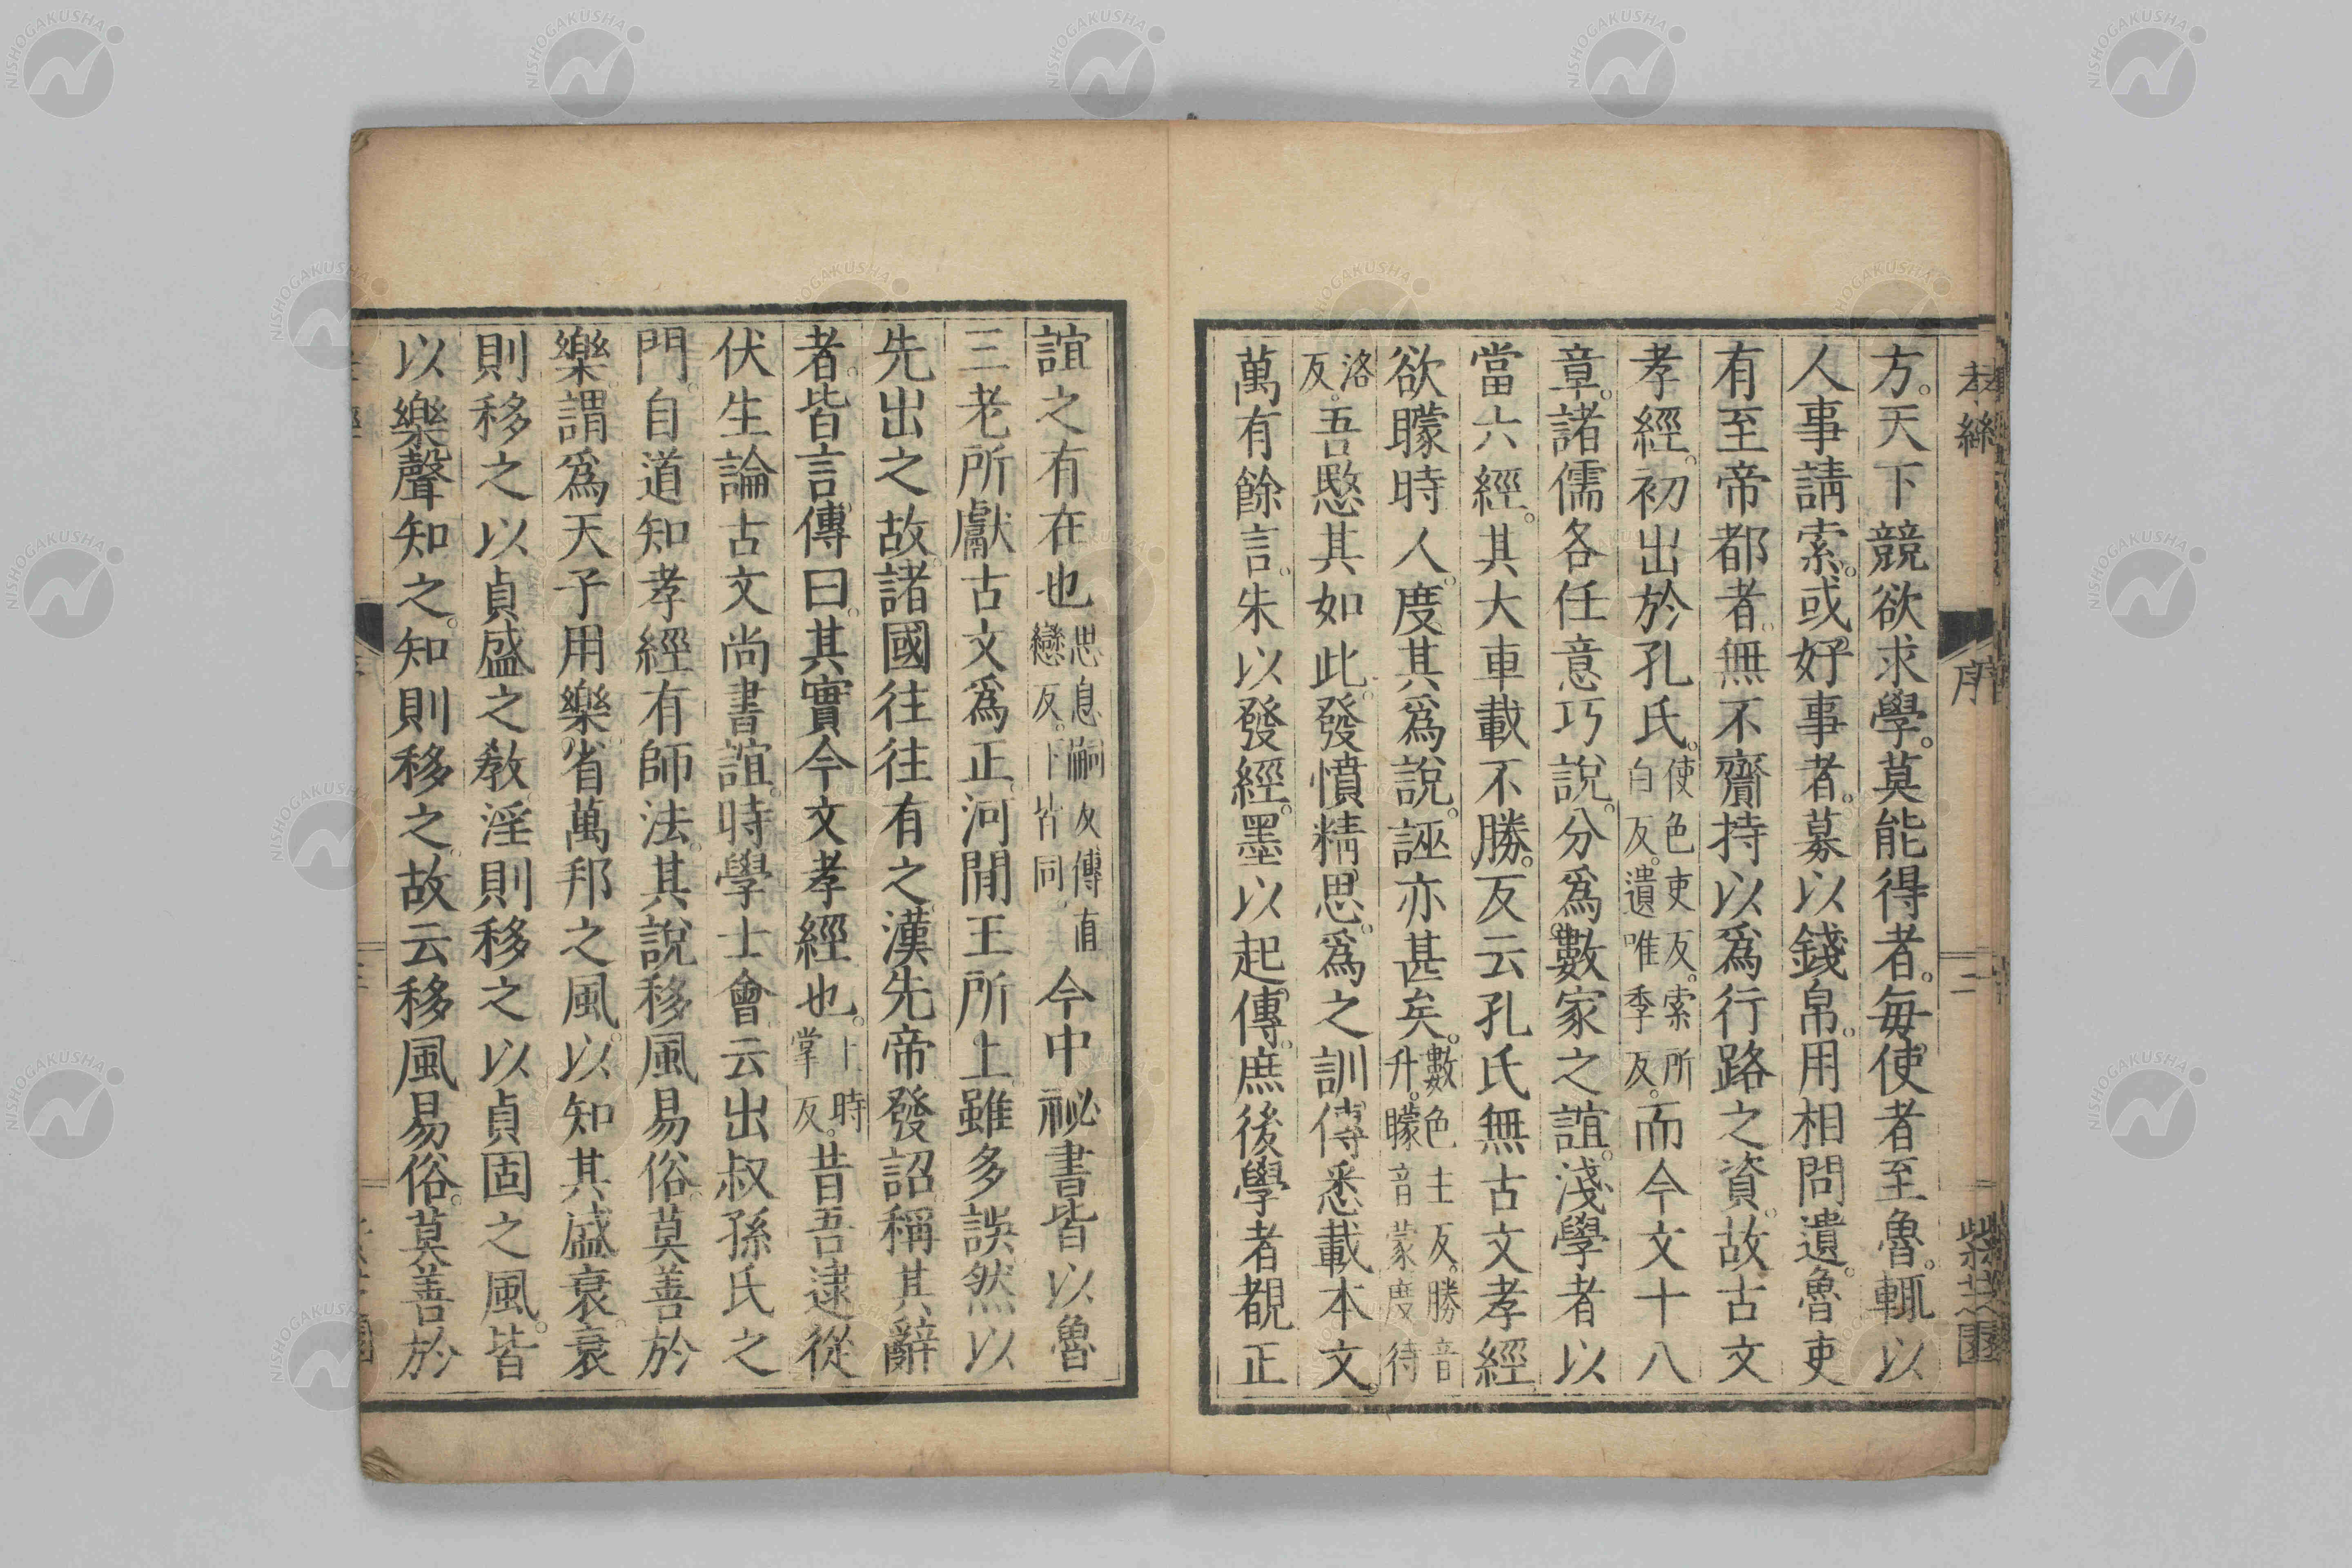 方。天下競欲求學。莫能得者。每使者至魯。輒以
人事請索。或好事者。募以錢帛。用相問遺。魯吏
有至帝都者。無不齎持以爲行路之資。故古文
孝經。初出於孔氏。使色吏反。索所白反。遺唯季反。而今文十八
章。諸儒各任意巧說。分爲數家之誼。淺學者以
當六經。其大車載不勝。反云孔氏無古文孝經
欲矇時人。度其爲說。誣亦甚矣。數色主反。勝音升。矇音蒙度待
洛反。吾愍其如此。發憤精思。爲之訓傳悉載本文。
萬有餘言。朱以發經。墨以起傳。庶後學者覩正
誼之有在也思息嗣反傳直戀反。下皆同今中祕書皆以魯
三老所獻古文爲正河閒王所上雖多誤然以
先出之故諸國往往有之漢先帝發詔稱其辭
者。皆言傳曰。其實今文孝經也。上時掌反。昔吾逮從
伏生論古文尚書誼。時學士會云出叔孫氏之
門。自道知孝經有師法。其說移風易俗。莫善於
樂。謂爲天子用樂。省萬邦之風。以知其盛衰。衰
則移之以貞盛之教。淫則移之以貞固之風。皆
以樂聲知之。知則移之。故云移風易俗。莫善於
序
二
紫芝園
NISHOGAKUSHA